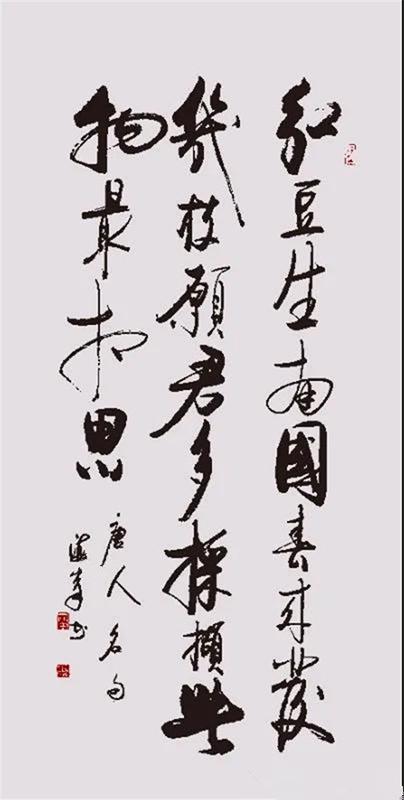 红豆生南國春来發
幾枝願君多採擷此
物最相思
唐人名句